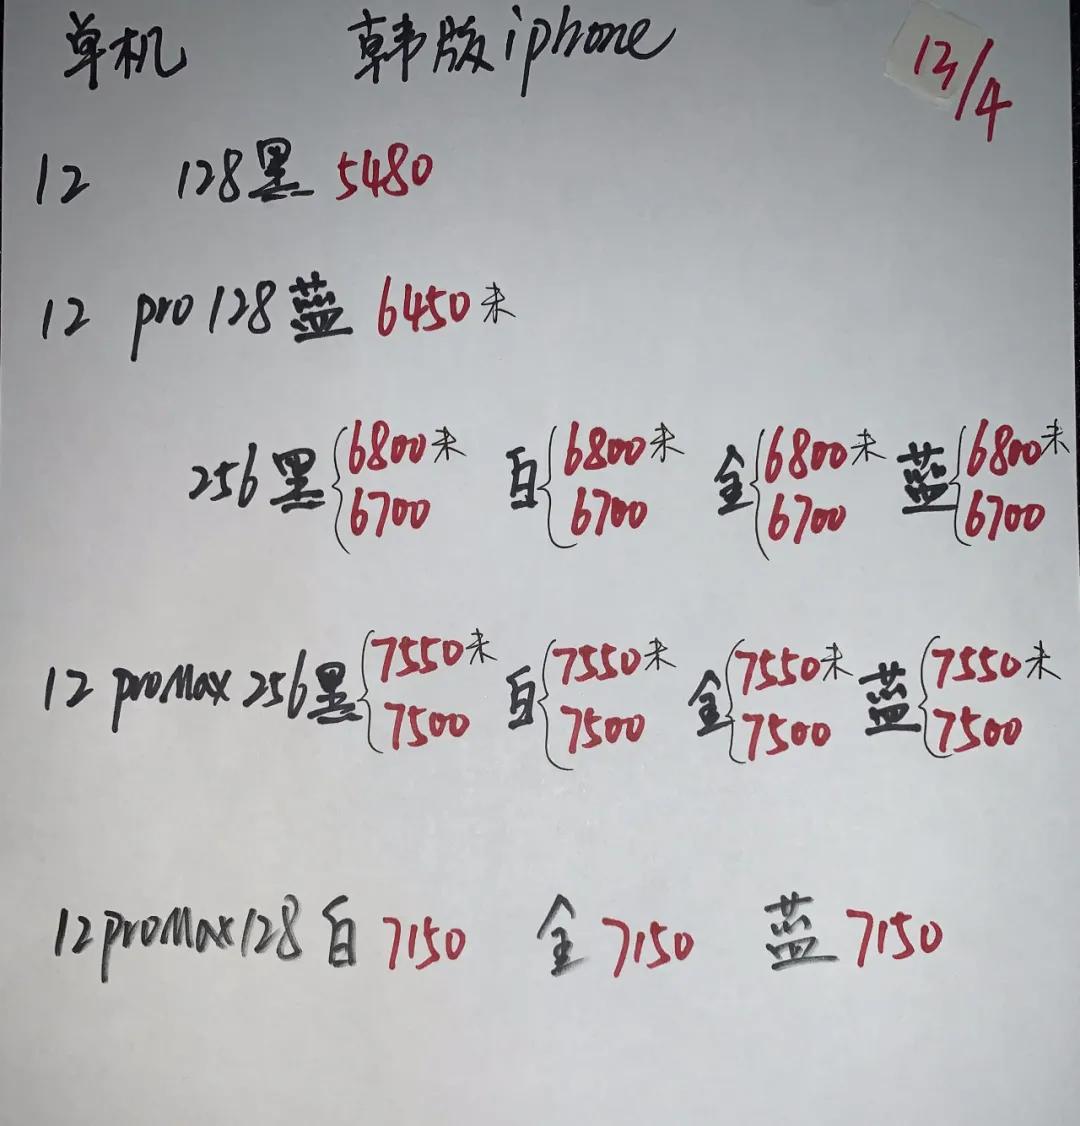 单机 韩版iphone 13/4
12 128黑 5480
12 pro 128蓝 6450未
256黑 6800未 6700 白 6800未 6700 金 6800未 6700 蓝 6800未 6700
12 proMax 256黑 7550未 7500 白 7550未 7500 金 7550未 7500 蓝 7550未 7500
12proMax128白 7150 金 7150 蓝 7150